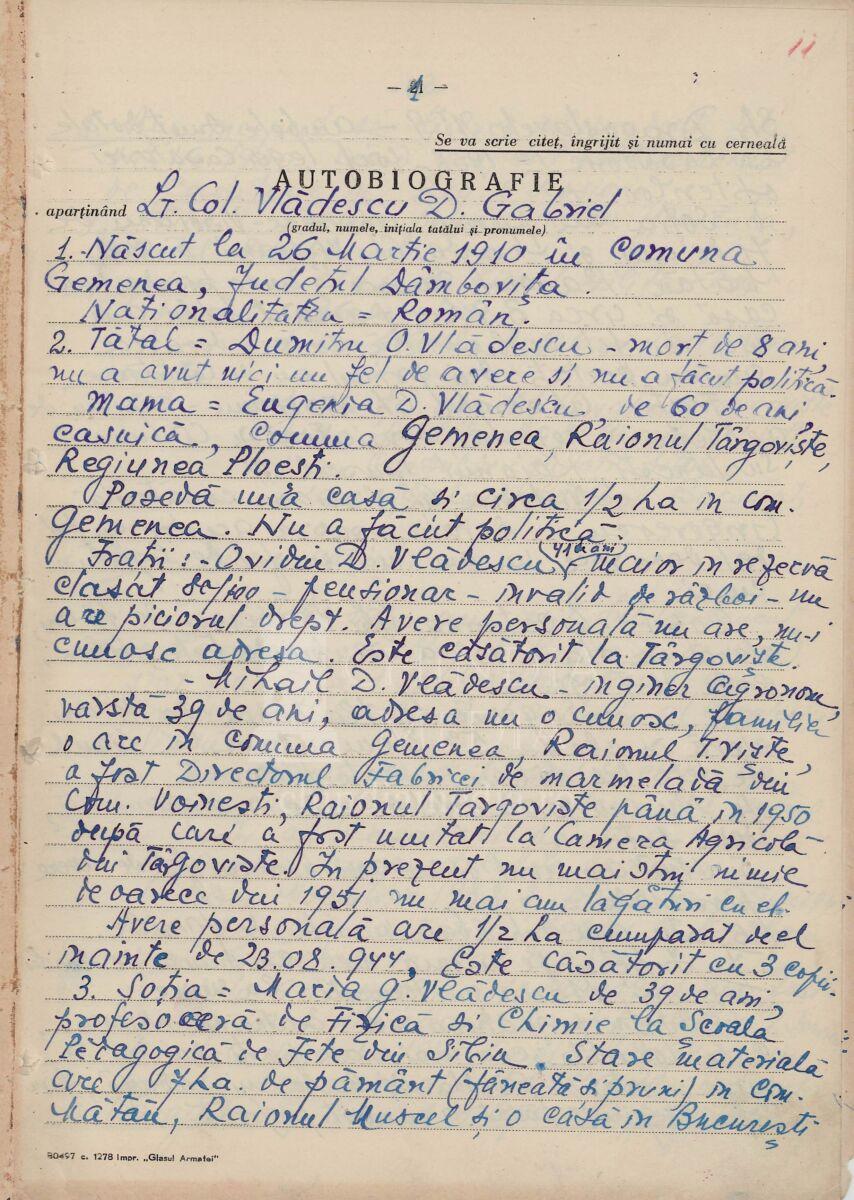 11
— 21 —
Se va scrie citeț, îngrijit și numai cu cerneală
AUTOBIOGRAFIE
aparținând Lt. Col. Vlădescu D. Gabriel
(gradul, numele, inițiala tatălui și pronumele)
1. Născut la 26 Martie 1910 în comuna
Gemenea, Județul Dâmbovița.
Naționalitatea = Român.
2. Tatăl = Dumitru O. Vlădescu - mort de 8 ani,
nu a avut nici un fel de avere si nu a făcut politică.
Mama = Eugenia D. Vlădescu, de 60 de ani,
casnică, comuna Gemenea, Raionul Târgoviște,
Regiunea Ploesti.
Posedă una casă si circa 1/2 ha in com.
Gemenea. Nu a făcut politică.
Frații: - Ovidiu D. Vlădescu (41 ani) maior in rezervă
clasat 80/100 - pensionar - invalid de război - nu
are piciorul drept. Avere personală nu are, nu-i
cunosc adresa. Este căsătorit la Târgoviște.
- Mihail D. Vlădescu - inginer agronom,
varstă 39 de ani, adresa nu o cunosc, familia
o are in comuna Gemenea, Raionul T.viște,
a fost Directorul Fabricei de marmeladă din
Com. Voinești, Raionul Targoviste până in 1950
după care a fost mutat la Camera Agricolă
din Târgoviste. In prezent nu mai știu nimic
deoarece din 1951 nu mai am lăgături cu el.
Avere personală are 1/2 ha cumpărat de el
inainte de 23.08.944, Este căsătorit cu 3 copii.
3. Soția = Maria G. Vlădescu de 39 de ani,
profesoară de Fizică si Chimie la Școala
Pedagogică de Fete din Sibiu. Stare materială
are 7 ha. de pământ (fâneață si pruni) in com.
Mățău, Raionul Muscel și o casă in București
B0497 c. 1278 Impr. „Glasul Armatei"